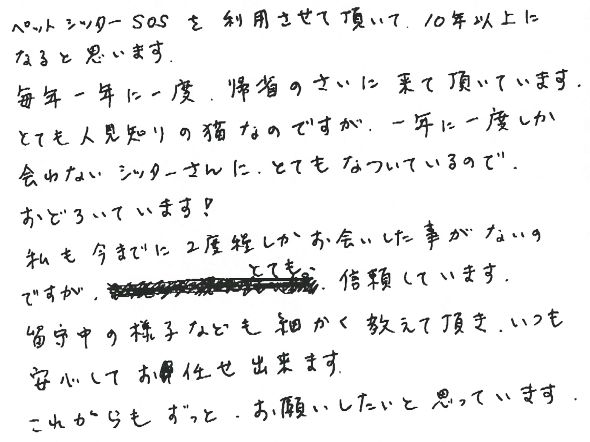 ペットシッターSOSを利用させて頂いて、10年以上に
なると思います。
毎年一年に一度、帰省のさいに来て頂いています。
とても人見知りの猫なのですが、一年に一度しか
会わないシッターさんに、とてもなついているので、
おどろいています!
私も今までに2度程しかお会いした事がないの
ですが、とても、信頼しています。
留守中の様子なども細かく教えて頂き、いつも
安心してお任せ出来ます。
これからもずっと、お願いしたいと思っています。